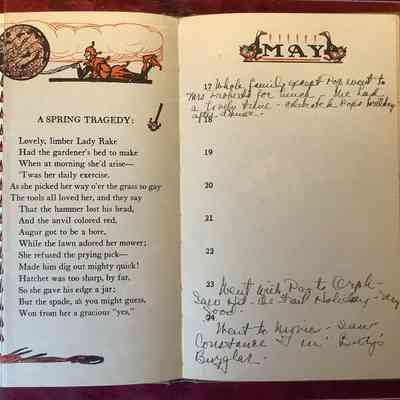 A SPRING TRAGEDY:
Lovely, limber Lady Rake
Had the gardener's bed to make
When at morning she'd arise—
'Twas her daily exercise.
As she picked her way o'er the grass so gay
The tools all loved her, and they say
That the hammer lost his head,
And the anvil colored red,
Augur got to be a bore,
While the lawn adored her mower;
She refused the prying pick—
Made him dig out mighty quick!
Hatchet was too sharp, by far,
So she gave his edge a jar;
But the spade, as you might guess,
Won from her a gracious "yes,"
MAY
17 Whole family except Pop went to
Mrs for lunch - We had
a lovely time - celebrated Pops birthday
after dinner.
18
19
20
21
22
23 Went with to Orph-
Saw - Holiday - very
Good.
24
Went to Movie - Saw
Constance T in Betty's
Burglar.